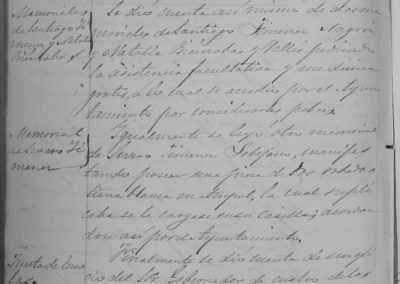 Memoriales
de Santiago Ji
menez y Natalia
Bienabas
Se dio cuenta asi mismo de dos me
moriales de Santiago Jimenez
y Natalia Bienabas y Valles pidiendo
la asistencia facultativa y medicina
gratis, a lo cual se accedio por el Ayun
tamiento por considerarlos pobres.
Memorial
de Severo Ji
menez
Igualmente se leyo otro memorial
de Severo Jimenez, manifes
tando poseer una pieza de dos robadas
tierra blanca en, la cual supli
caba se le cargase en su Casilla; acordan
dose asi por el Ayuntamiento.
Junta de
Finalmente se dio cuenta de un ofi
cio del Sor Gobernador de